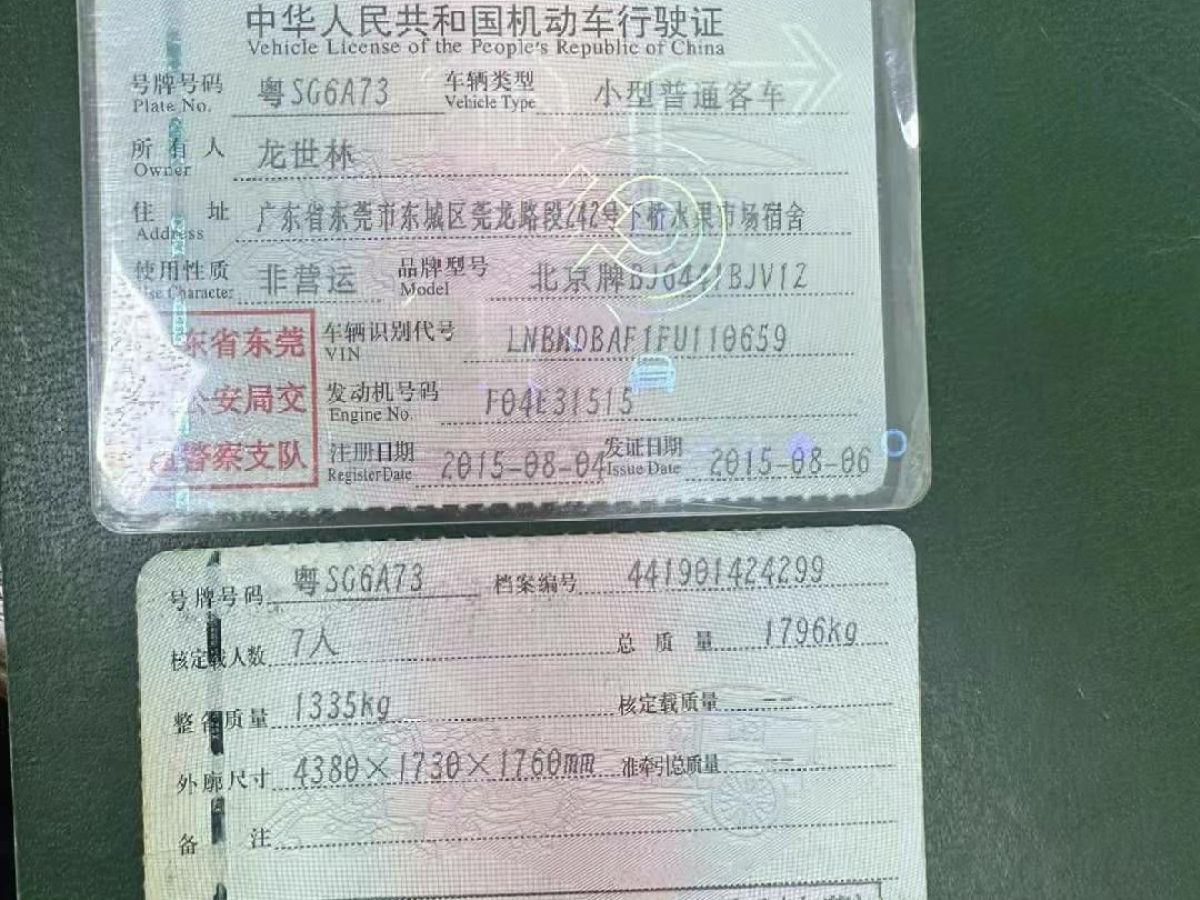 中华人民共和国机动车行驶证
Vehicle License of the People's Republic of China
号牌号码 粤SG6A73 车辆类型 小型普通客车
Plate No. Vehicle Type
所有人 龙世林
Owner
住址 广东省东莞市东城区莞龙路段242号下桥水果市场宿舍
Address
使用性质 非营运 品牌型号 北京牌BJ6441BJV1Z
Use Character Model
东省东莞 车辆识别代号 LNBMDBAF1FU110659
VIN
公安局交 发动机号码 F04E31515
Engine No.
警察支队 注册日期 2015-08-04 发证日期 2015-08-06
Register Date Issue Date
号牌号码 粤SG6A73 档案编号 441901424299
核定载人数 7人 总质量 1796kg
整备质量 1335kg 核定载质量 --
外廓尺寸 4380×1730×1760mm 准牵引总质量 --
备注